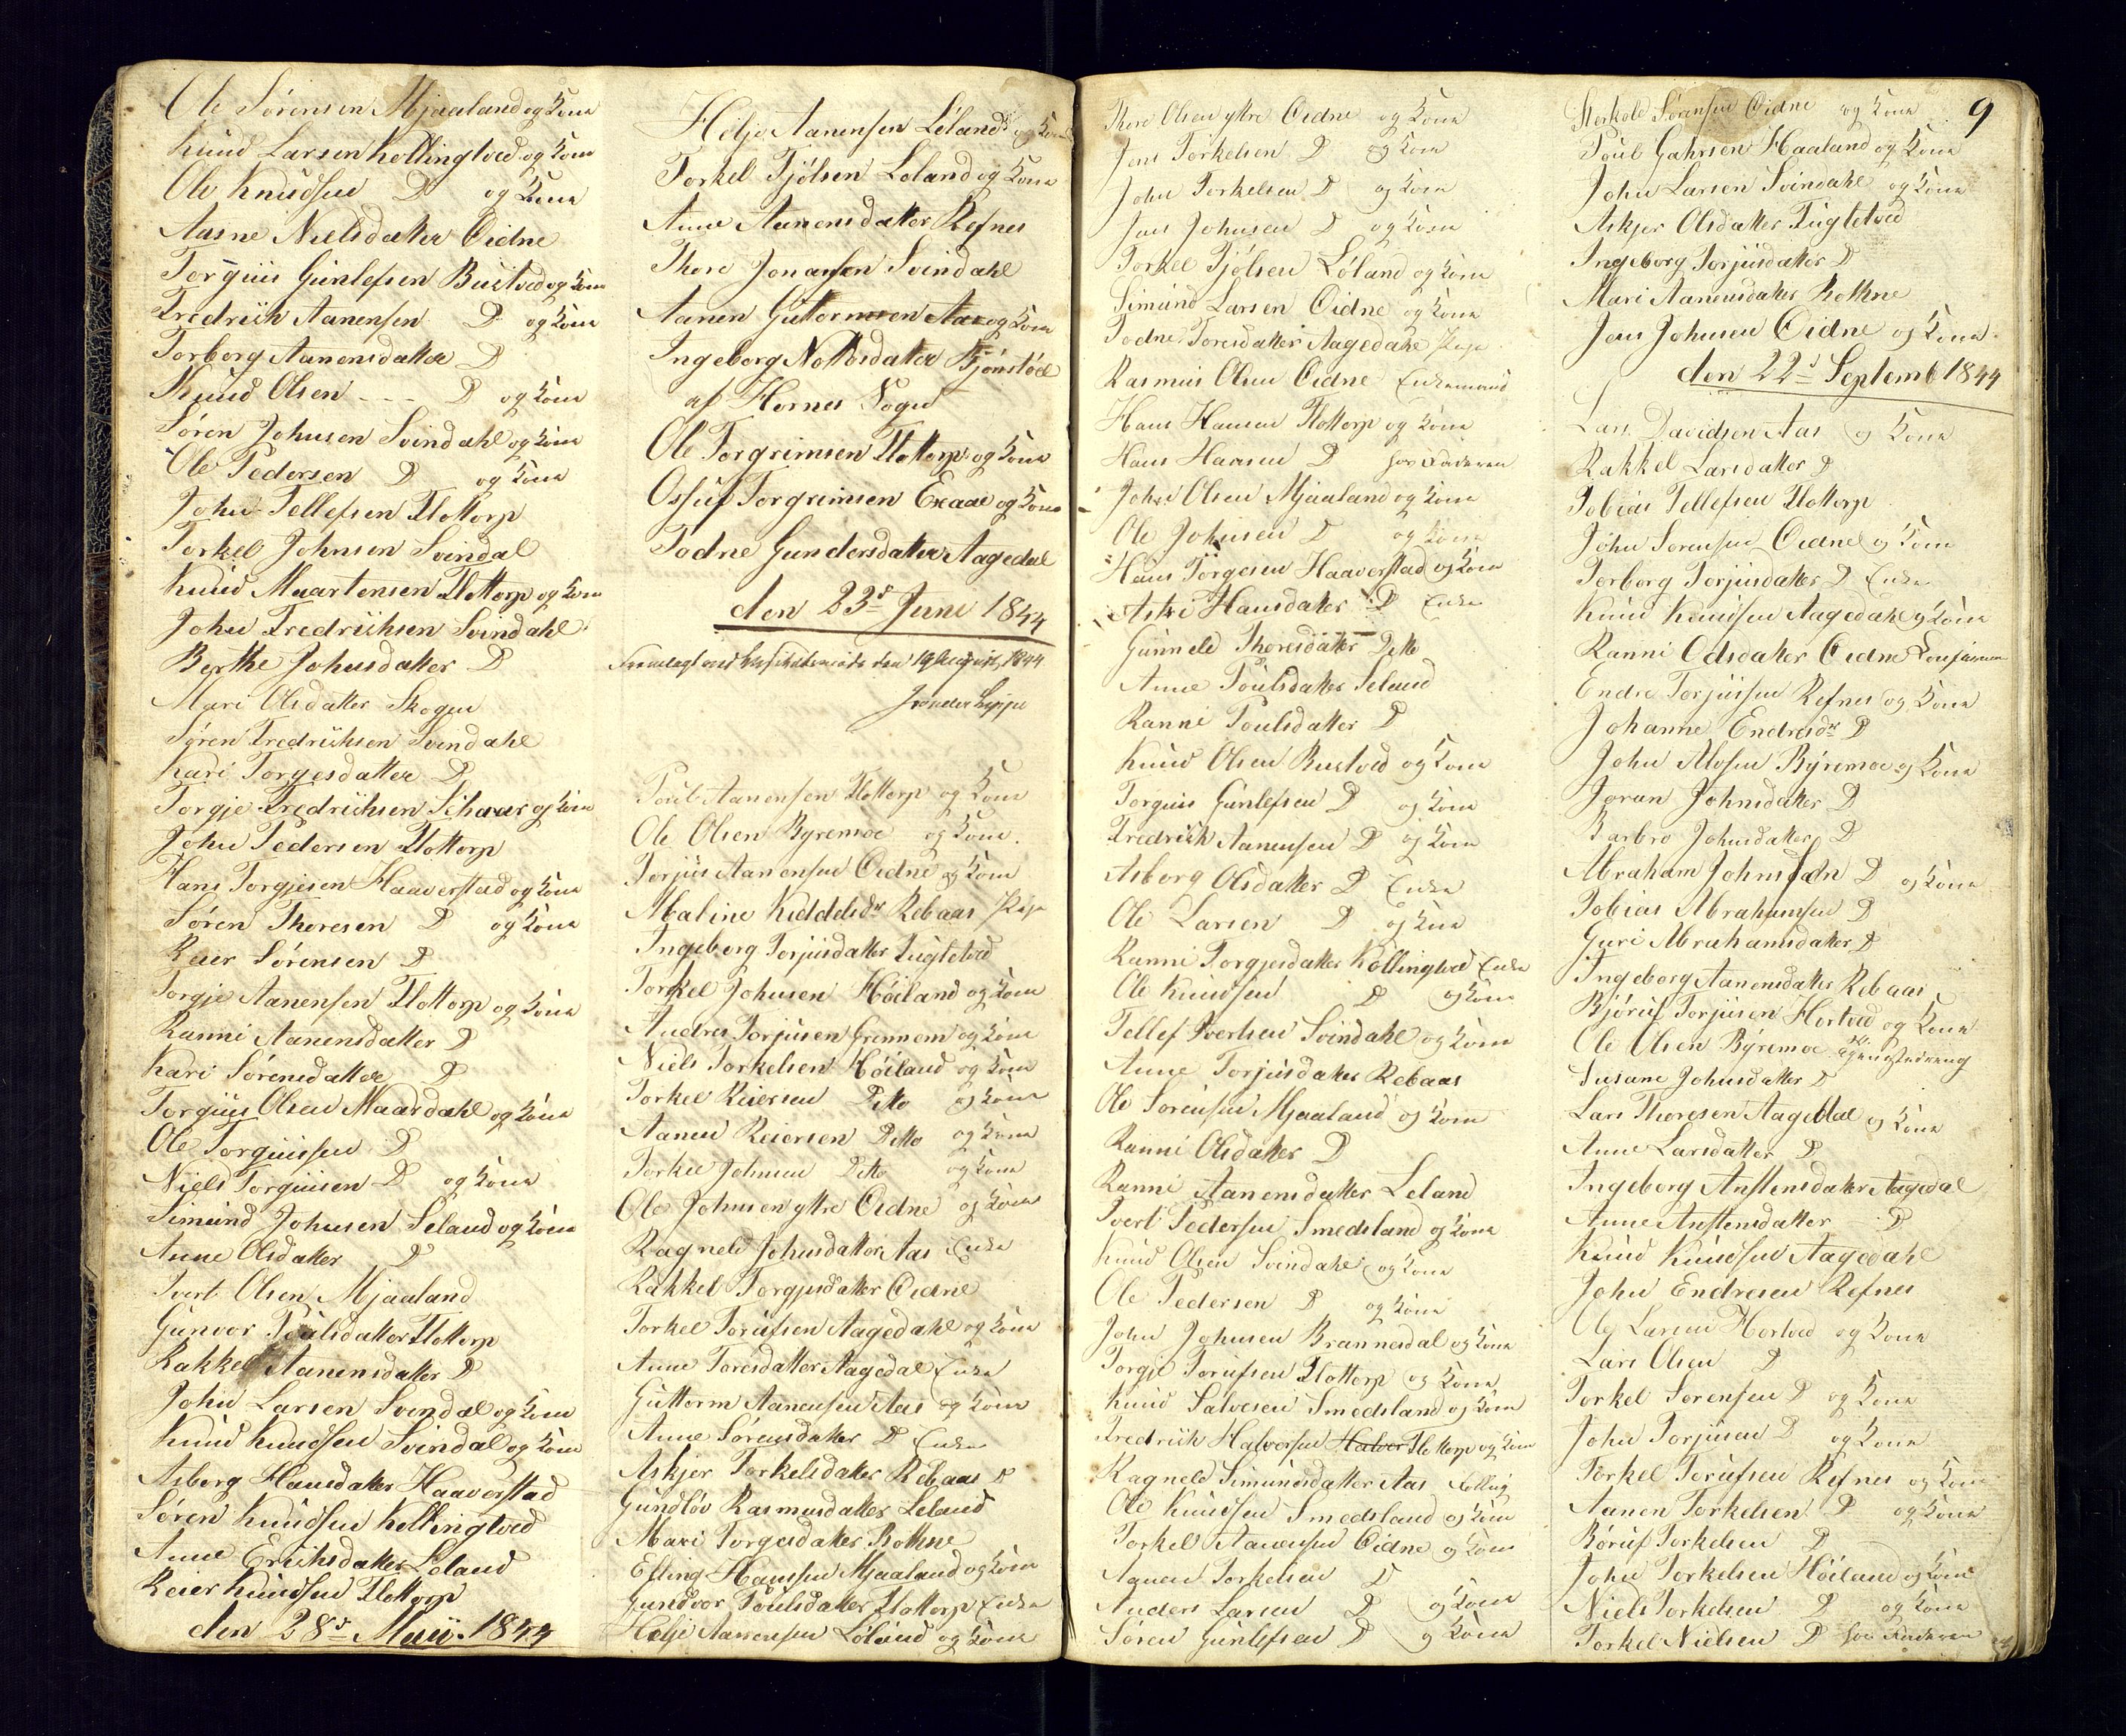 Ole Sørensen Mjaaland og Kone
Knud Larsen Kollingtved og Kone
Ole Knudsen D og Kone
Aasne Nielsdatter Øidne
Torguis Gunlefsen Bustved og Kone
Fredrich Aanensen D og Kone
Torborg Aanensdatter D
Knud Olsen - - - D og Kone
Søren Johnsen Svindahl og Kone
Ole Pedersen D og Kone
John Tellefsen Flottorp
Torkel Johnsen Svindal
Knud Maartensen Flottorp og Kone
John Fredrichsen Svindahl
Berthe Johnsdatter D
Mari Olsdatter Skogen
Søren Fredrichsen Svindahl
Kari Torgesdatter D
Torgje Fredrichsen og Kone
John Pedersen Flottorp
Hans Torgjesen Haaverstad og Kone
Søren Thoresen D og Kone
Reier Sørensen D
Torgje Aanensen Flottorp og Kone
Ranni Aanensdatter D
Kari Sørensdatter D
Torguis Olsen Maardahl og Kone
Ole Torguissen D
Niels Torguisen D og Kone
Simund Johnsen Seland og Kone
Anne Olsdatter D
Ivert Olsen Mjaaland
Gunvor Poulsdatter Flottorp
Rakkel Aanensdatter D
John Larsen Svendal og Kone
Knud Knudsen Svindal og Kone
Asborg Hansdatter Haaverstad
Søren Knudsen Kollingtved
Anne Erichsdatter Leland
Reier Knudsen Flottorp
den 28de Maii 1844
Helje Aanensen Løland og Kone
Torkel Tjølsen Løland og Kone
Anne Aanensdatter Refnes
Thore Jonassen Svindahl
Aanen Guttormsen Aas og Kone
Ingeborg Nottosdatter Bjønstøel
af Hornes Sogn
Ole Torgrimsen Flottorp og Kone
Ossuf Torgrimsen Exaae og Kone
Todne Gundersdatter Aagedal
den 23de Juni 1844
Fremlagt ved 19 August 1844
Poul Aanensen Flottorp og Kone
Ole Olsen Byremoe og Kone
Torjus Aanensen Øidne og Kone
Maline Kiddelsdr Rebaas Pige
Ingeborg Torjusdatter Fugletved
Torkel Johnsen Høiland og Kone
Andres Torjusen Grennem og Kone
Niels Torkelsen Høiland og Kone
Torkel Reiersen Ditto og Kone
Aanen Reiersen Ditto og Kone
Torkel Johnsen Ditto og Kone
Ole Johnsen yttre Øidne og Kone
Ragneld Johnsdatter Aas Enke
Rakkel Torgjesdatter Øidne
Torkel Torufsen Aagedahl og Kone
Anne Toresdatter Aagedal Enke
Guttorm Aanensen Aas og Kone
Anne Sørensdatter D Enke
Askjer Torkelsdatter Rebaas D
Gundløv Rasmusdatter Leland
Mari Torgesdatter Rothne
Efting Hansen Mjaaland og Kone
Gundvor Poulsdatter Flottorp Enke
Helje Aanensen Løland og Kone
Thore Olsen yttre Øidne og Kone
Jens Torkelsen D og Kone
John Torkelsen D og Kone
Jens Johnsen D og Kone
Torkel Tjølsen Løland og Kone
Simund Larsen Øidne og Kone
Todne Toresdatter Aagedahl Pige
Rasmus Olsen Øidne Enkemand
Hans Hansen Flottorp og Kone
Hans Hansen D
John Olsen Mjaaland og Kone
Ole Johnsen D og Kone
Hans Torgesen Haaverstad og Kone
Astri Hansdatter D Enke
Gunneld Thoresdatter Ditto
Anne Poulsdatter Seland
Ranni Poulsdatter D
Knud Olsen Bustved og Kone
Torguis Gunlefsen D og Kone
Fredrich Aanensen D og Kone
Asborg Olsdatter D Enke
Ole Larsen D og Kone
Ranni Torgjesdatter Kollingtved Enke
Ole Knudsen D og Kone
Tellef Ivertsen Svindahl og Kone
Anne Torjusdatter Rebaas
Ole Sørensen Mjaaland og Kone
Ranni Olsdatter D
Ranni Aanensdatter Leland
Ivert Pedersen Smedsland og Kone
Knud Olsen Svindahl og Kone
Ole Pedersen D og Kone
John Johnsen Brannesdal og Kone
Torgje Torufsen Flottorp og Kone
Knud Salvesen Smedsland og Kone
Fredrich Halvorsen Halvor Flottorp og Kone
Ragneld Simundsdatter Aas
Ole Knudsen Smedsland og Kone
Torkel Aanensen Øidne og Kone
Aanen Torkelsen D
Anders Larsen D og Kone
Søren Gunlefsen D og Kone
9
Sterkole Sørensen Øidne og Kone
Poul Gahrsen Haaland og Kone
John Larsen Svindahl og Kone
Askjer Olsdatter Fugletved
Ingeborg Torjusdatter D
Mari Aanensdatter Rothne
Jens Johnsen Øidne og Kone
den 22de Septemb 1844
Lars Davidsen Aas og Kone
Rakkel Larsdatter D
Tobias Tellefsen Flottorp
John Sørensen Øidne og Kone
Torborg Torjusdatter D Enke
Knud Knudsen Aagedahl og Kone
Ranni Odsdatter Øidne
Endre Torjussen Refnes og Kone
Johanne Endresdr D
John Alofsen Byremoe og Kone
Joran Johnsdatter D
Barbro Johnsdatter D
Abraham Johnsen D og Kone
Tobias Abrahamsen D
Guri Abrahamsdatter D
Ingeborg Aanensdatter Rebaas
Bjøruf Torjusen Hortved og Kone
Ole Olsen Byremoe
Susane Johnsdatter D
Lars Thoresen Aagedal og Kone
Anne Larsdatter D
Ingeborg Anstensdatter Aagedal
Anne Anstensdatter D
Knud Knudsen Aagedahl
John Endresen Refnes
Ole Larsen Hortved og Kone
Lars Olsen D
Torkel Sørensen D og Kone
John Torjusen D og Kone
Torkel Torufsen Refnes og Kone
Aanen Torkelsen D og Kone
Børuf Torkelsen D
John Torkelsen Høiland og Kone
Niels Torkelsen D og Kone
Torkel Nielsen D